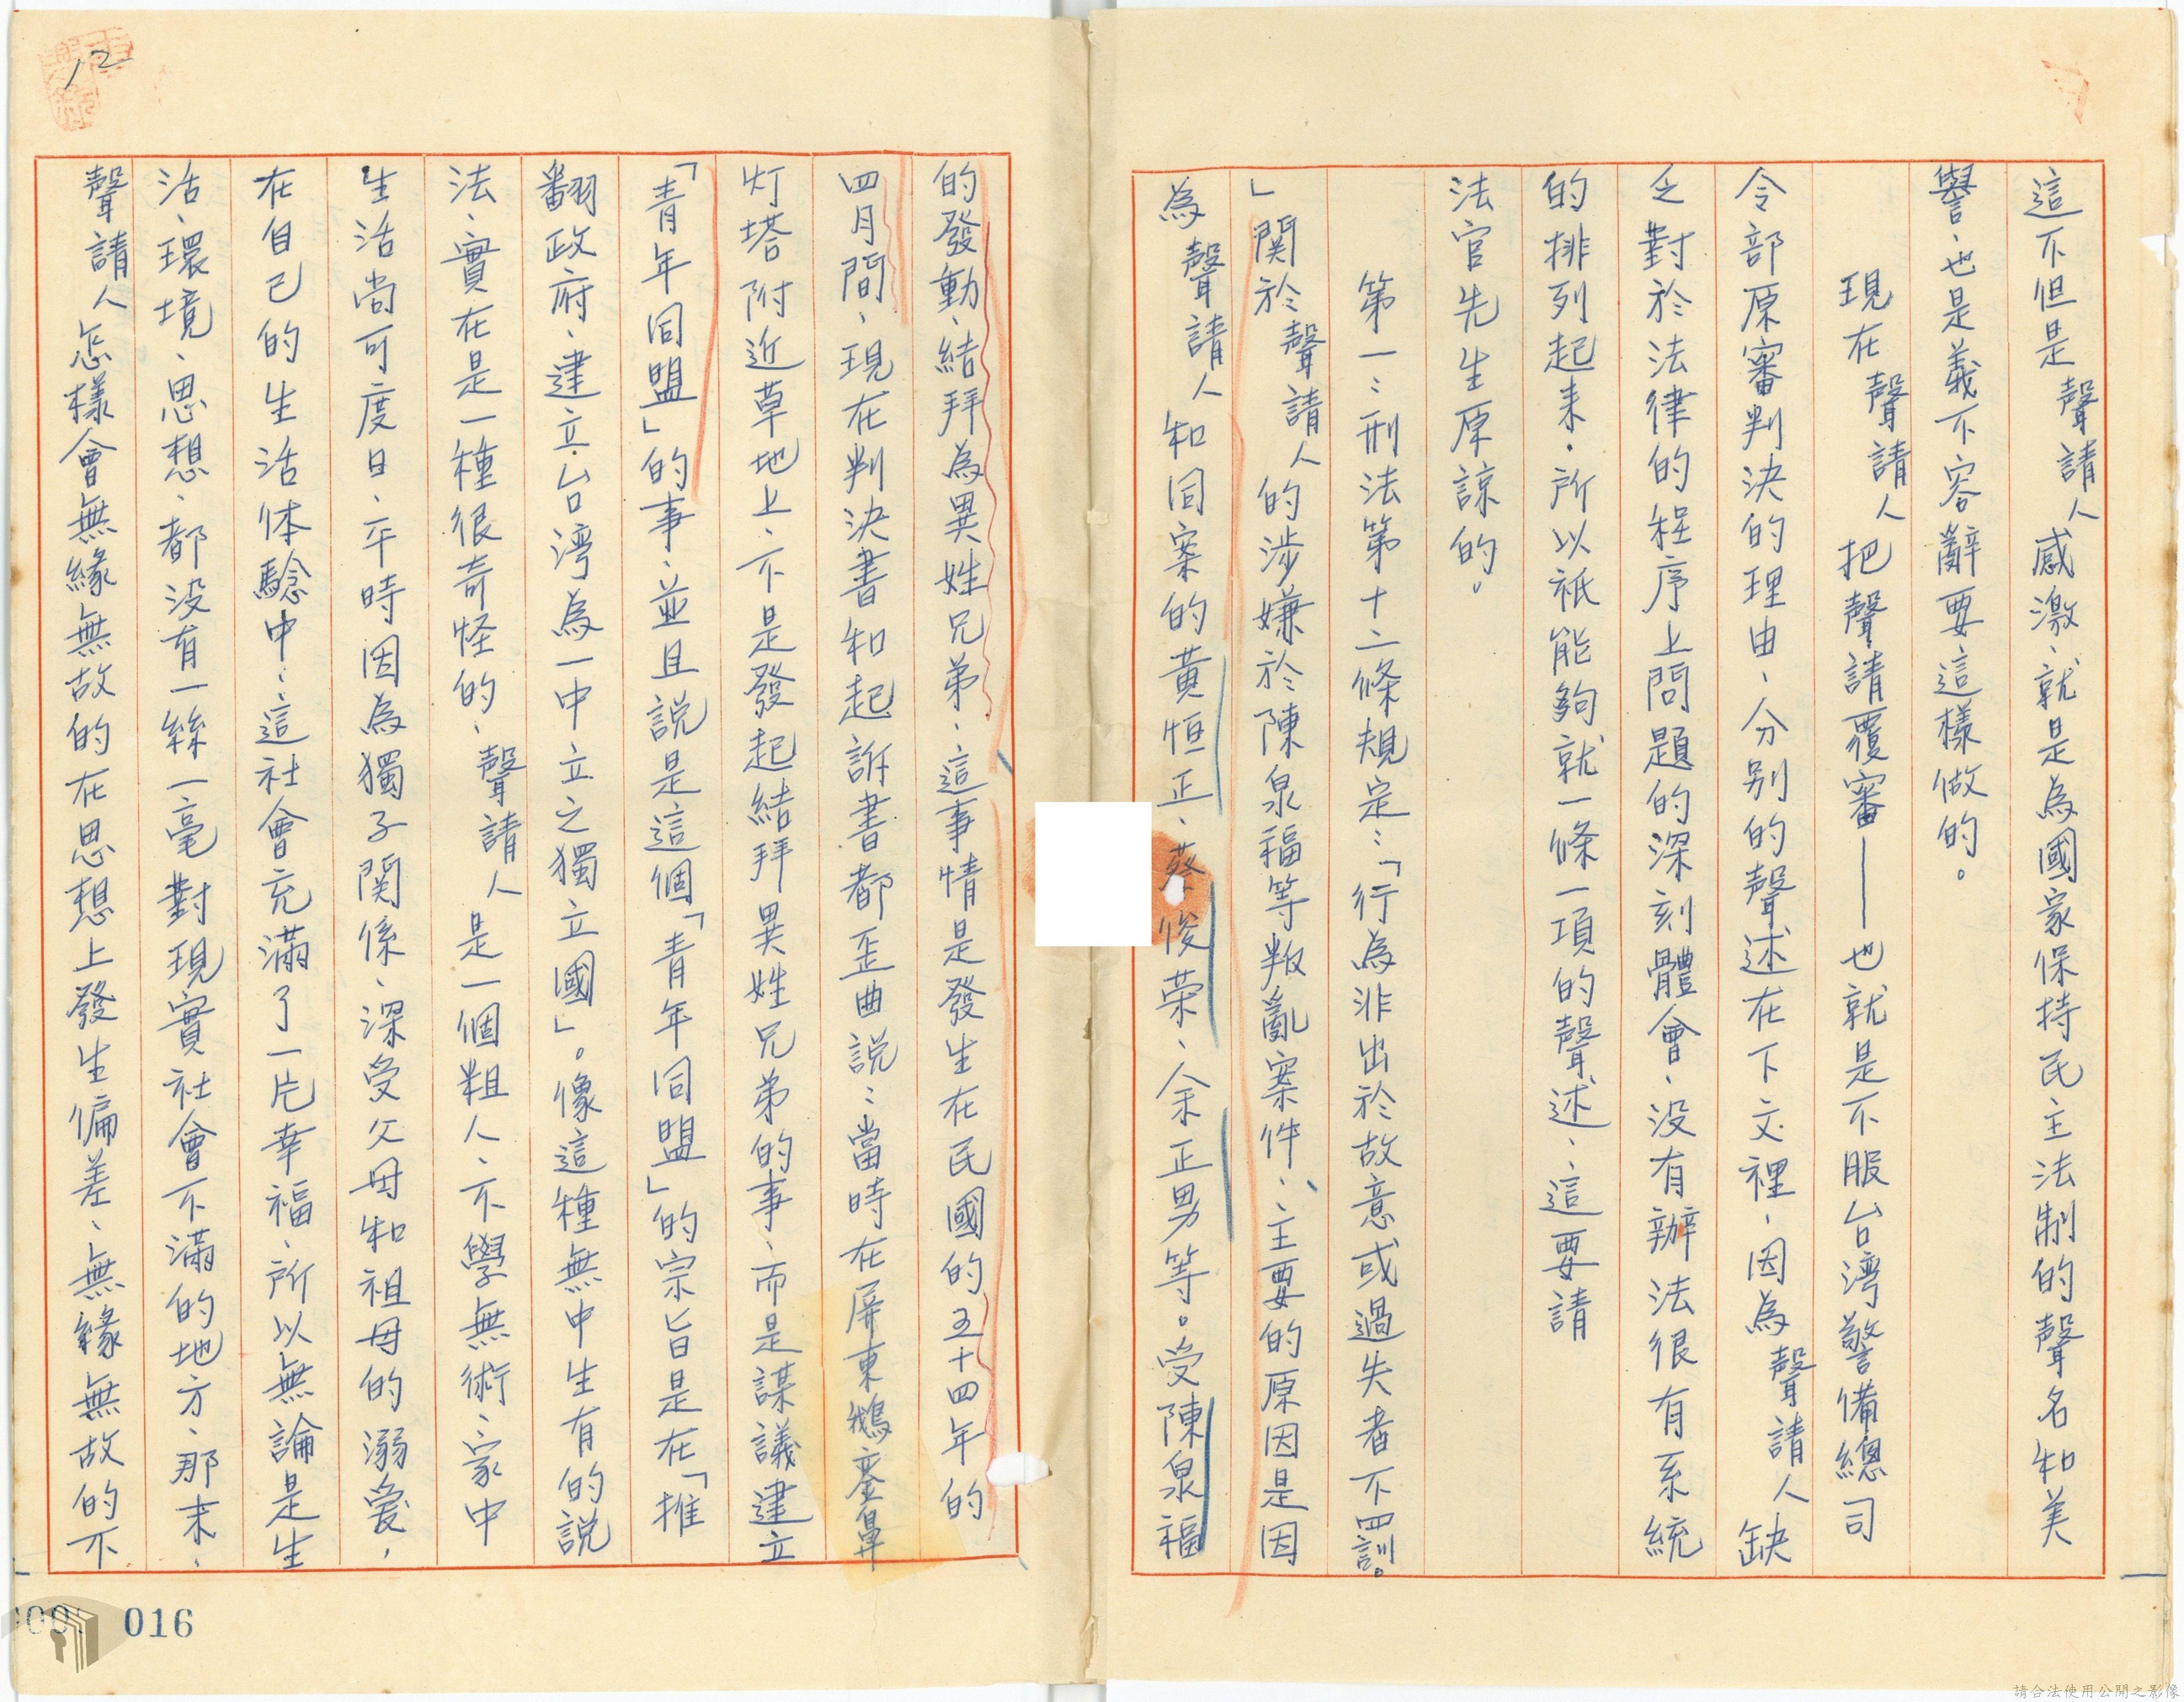 這不但是聲請人感激、就是為國家保持民主法制的聲名和美
譽、也是義不容辭要這樣做的。
現在聲請人把聲請覆審——也就是不服台湾警備總司
令部原審判決的理由、分別的聲述在下文裡、因為聲請人缺
乏對於法律的程序上問題的深刻體會、没有辦法很有系統
的排列起来．所以祇能夠就一條一項的聲述、這要請
法官先生原諒的。
第一：刑法第十二條規定：「行為非出於故意或過失者不罰。
」関於聲請人的涉嫌於陳泉福等叛亂案件、主要的原因是因
為聲請人和同案的黄恒正、蔡俊荣、余正男等。受陳泉福
的發動、結拜為異姓兄弟、這事情是發生在民國的五十四年的
四月間、現在判決書和起訴書都歪曲説：當時在屏東鵝鑾鼻
灯塔附近草地上、不是發起結拜異姓兄弟的事、而是謀議建立
「青年同盟」的事、並且説是這個「青年同盟」的宗旨是在「推
翻政府、建立台湾為一中立之獨立國」。像這種無中生有的説
法、實在是一種很奇怪的、聲請人是一個粗人、不學無術、家中
生活尚可度日、平時因為獨子関係、深受父母和祖母的溺愛，
在自己的生活体驗中、這社會充滿了一片幸福、所以無論是生
活、環境、思想、都没有一絲一毫對現實社會不滿的地方、那末、
聲請人怎樣會無緣無故的在思想上發生偏差、無緣無故的不
12
016
請合法使用公開之影像